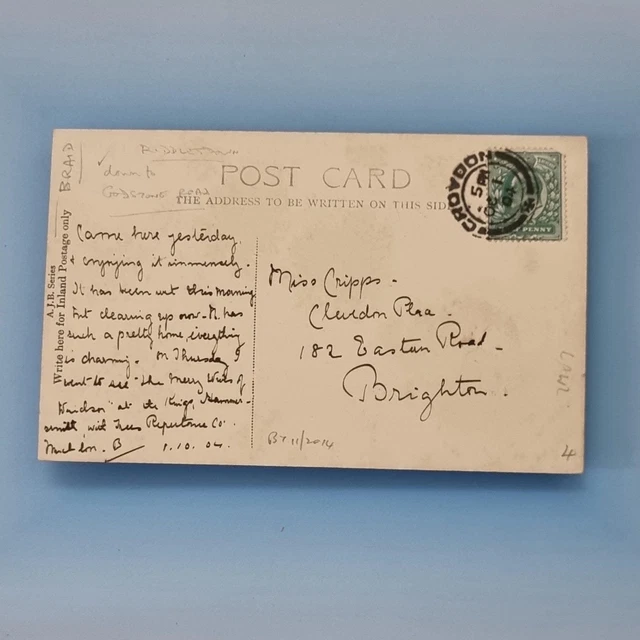 BRAID
down to
ROAD
POST CARD
THE ADDRESS TO BE WRITTEN ON THIS SIDE
A.J.B. Series
Write here for Inland Postage only
CROYDON
PENNY
Came here yesterday,
& enjoying it immensely.
It has been wet this morning
but clearing up now - M. has
such a pretty home, everything
is charming. On Thursday I
went to see "The Merry Wives of
Windsor" at the Kings, Hammer-
smith, with Trees Repertoire Co.
Much love. B 1.10.04.
Miss Cripps -
Clevedon
182 Eastern Road -
Brighton.
BT 11/2014
4